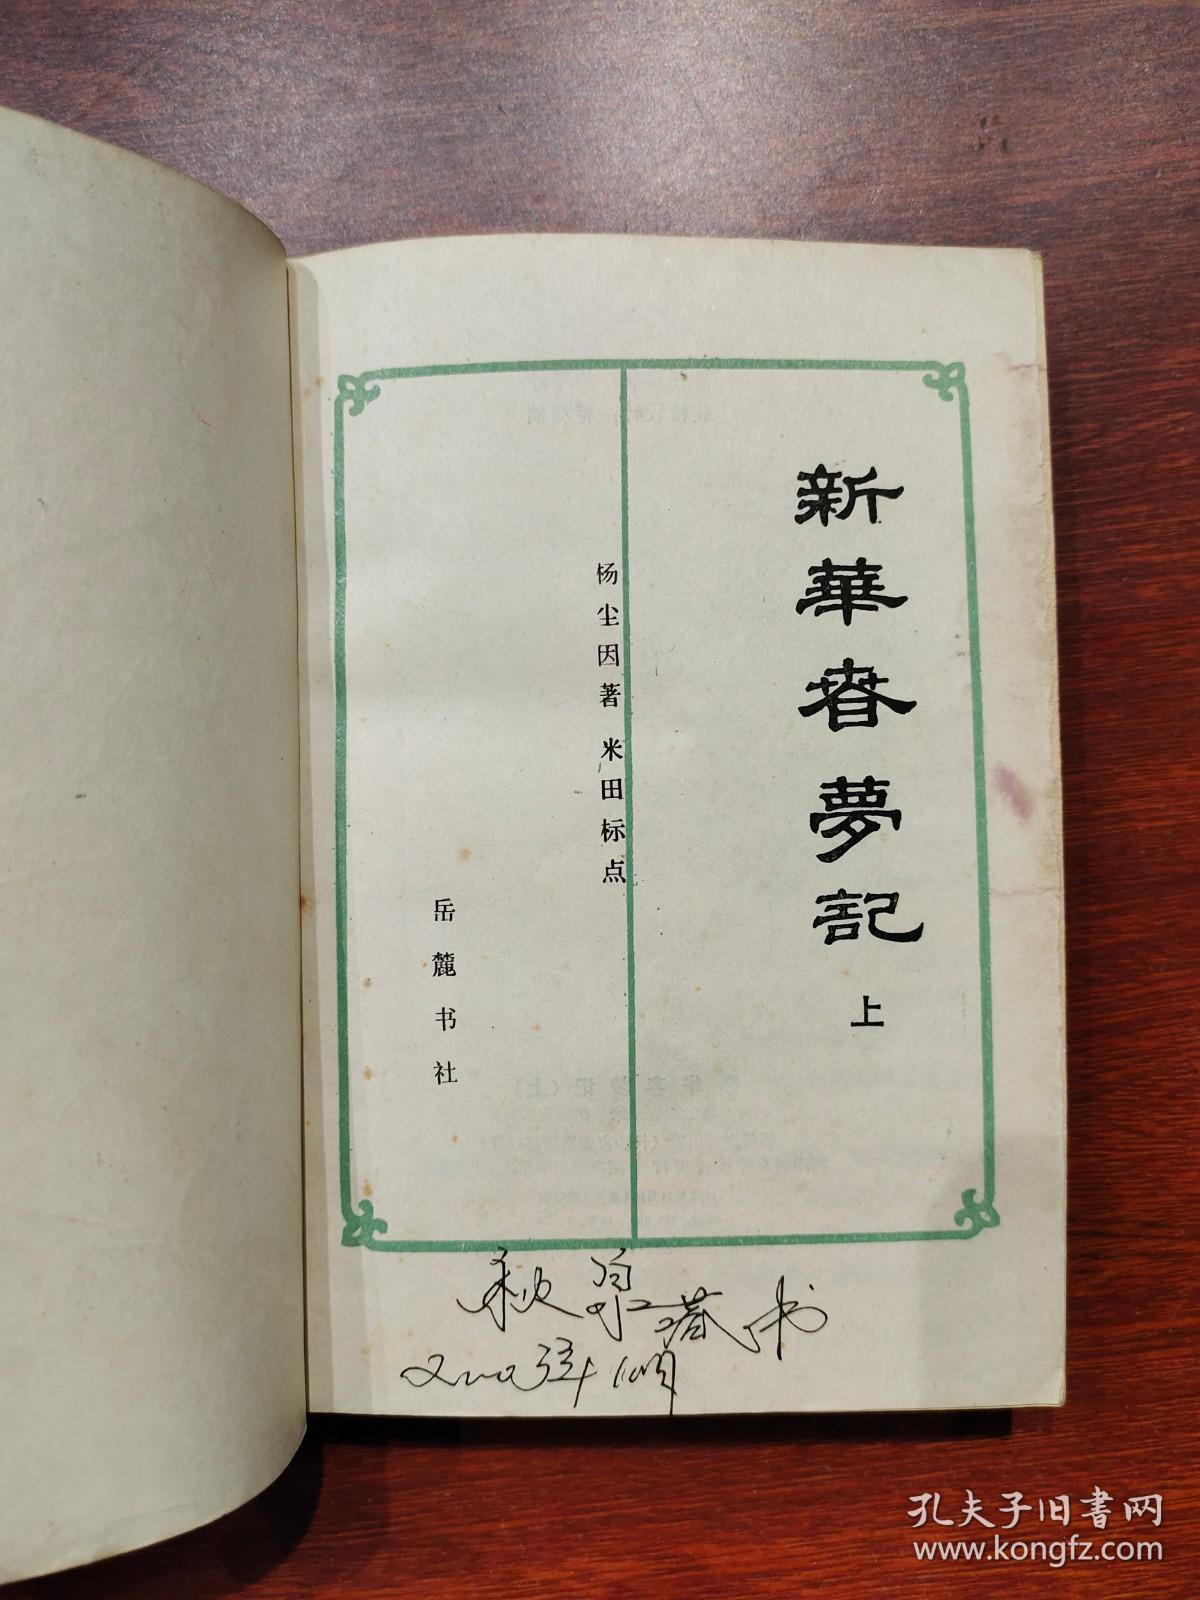 新華春夢記
上
杨尘因著 米田标点
岳麓书社
秋泉藏书
孔夫子旧书网
www.kongfz.com